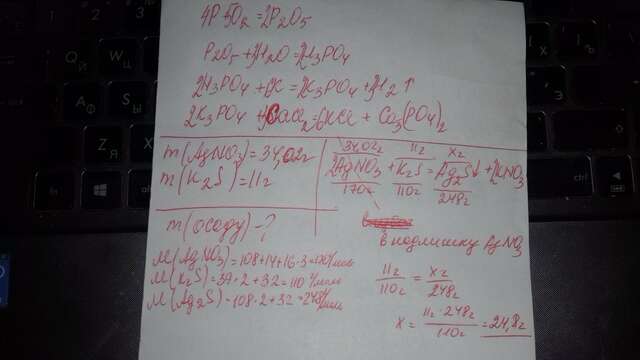 4P+5O₂=2P₂O₅
P₂O₅+3H₂O=2H₃PO₄
2H₃PO₄+6K=2K₃PO₄+3H₂↑
2K₃PO₄+3CaCl₂=6KCl+Ca₃(PO₄)₂
m(AgNO₃)=34,02г
m(K₂S)=11г
m(осаду)-?
M(AgNO₃)=108+14+16·3=170г/моль
M(K₂S)=39·2+32=110г/моль
M(Ag₂S)=108·2+32=248г/моль
34,02г 11г xг
2AgNO₃+K₂S=Ag₂S↓+2KNO₃
170г 110г 248г
в надлишку AgNO₃
11г/110г=xг/248г
x=11г·248г/110г=24,8г